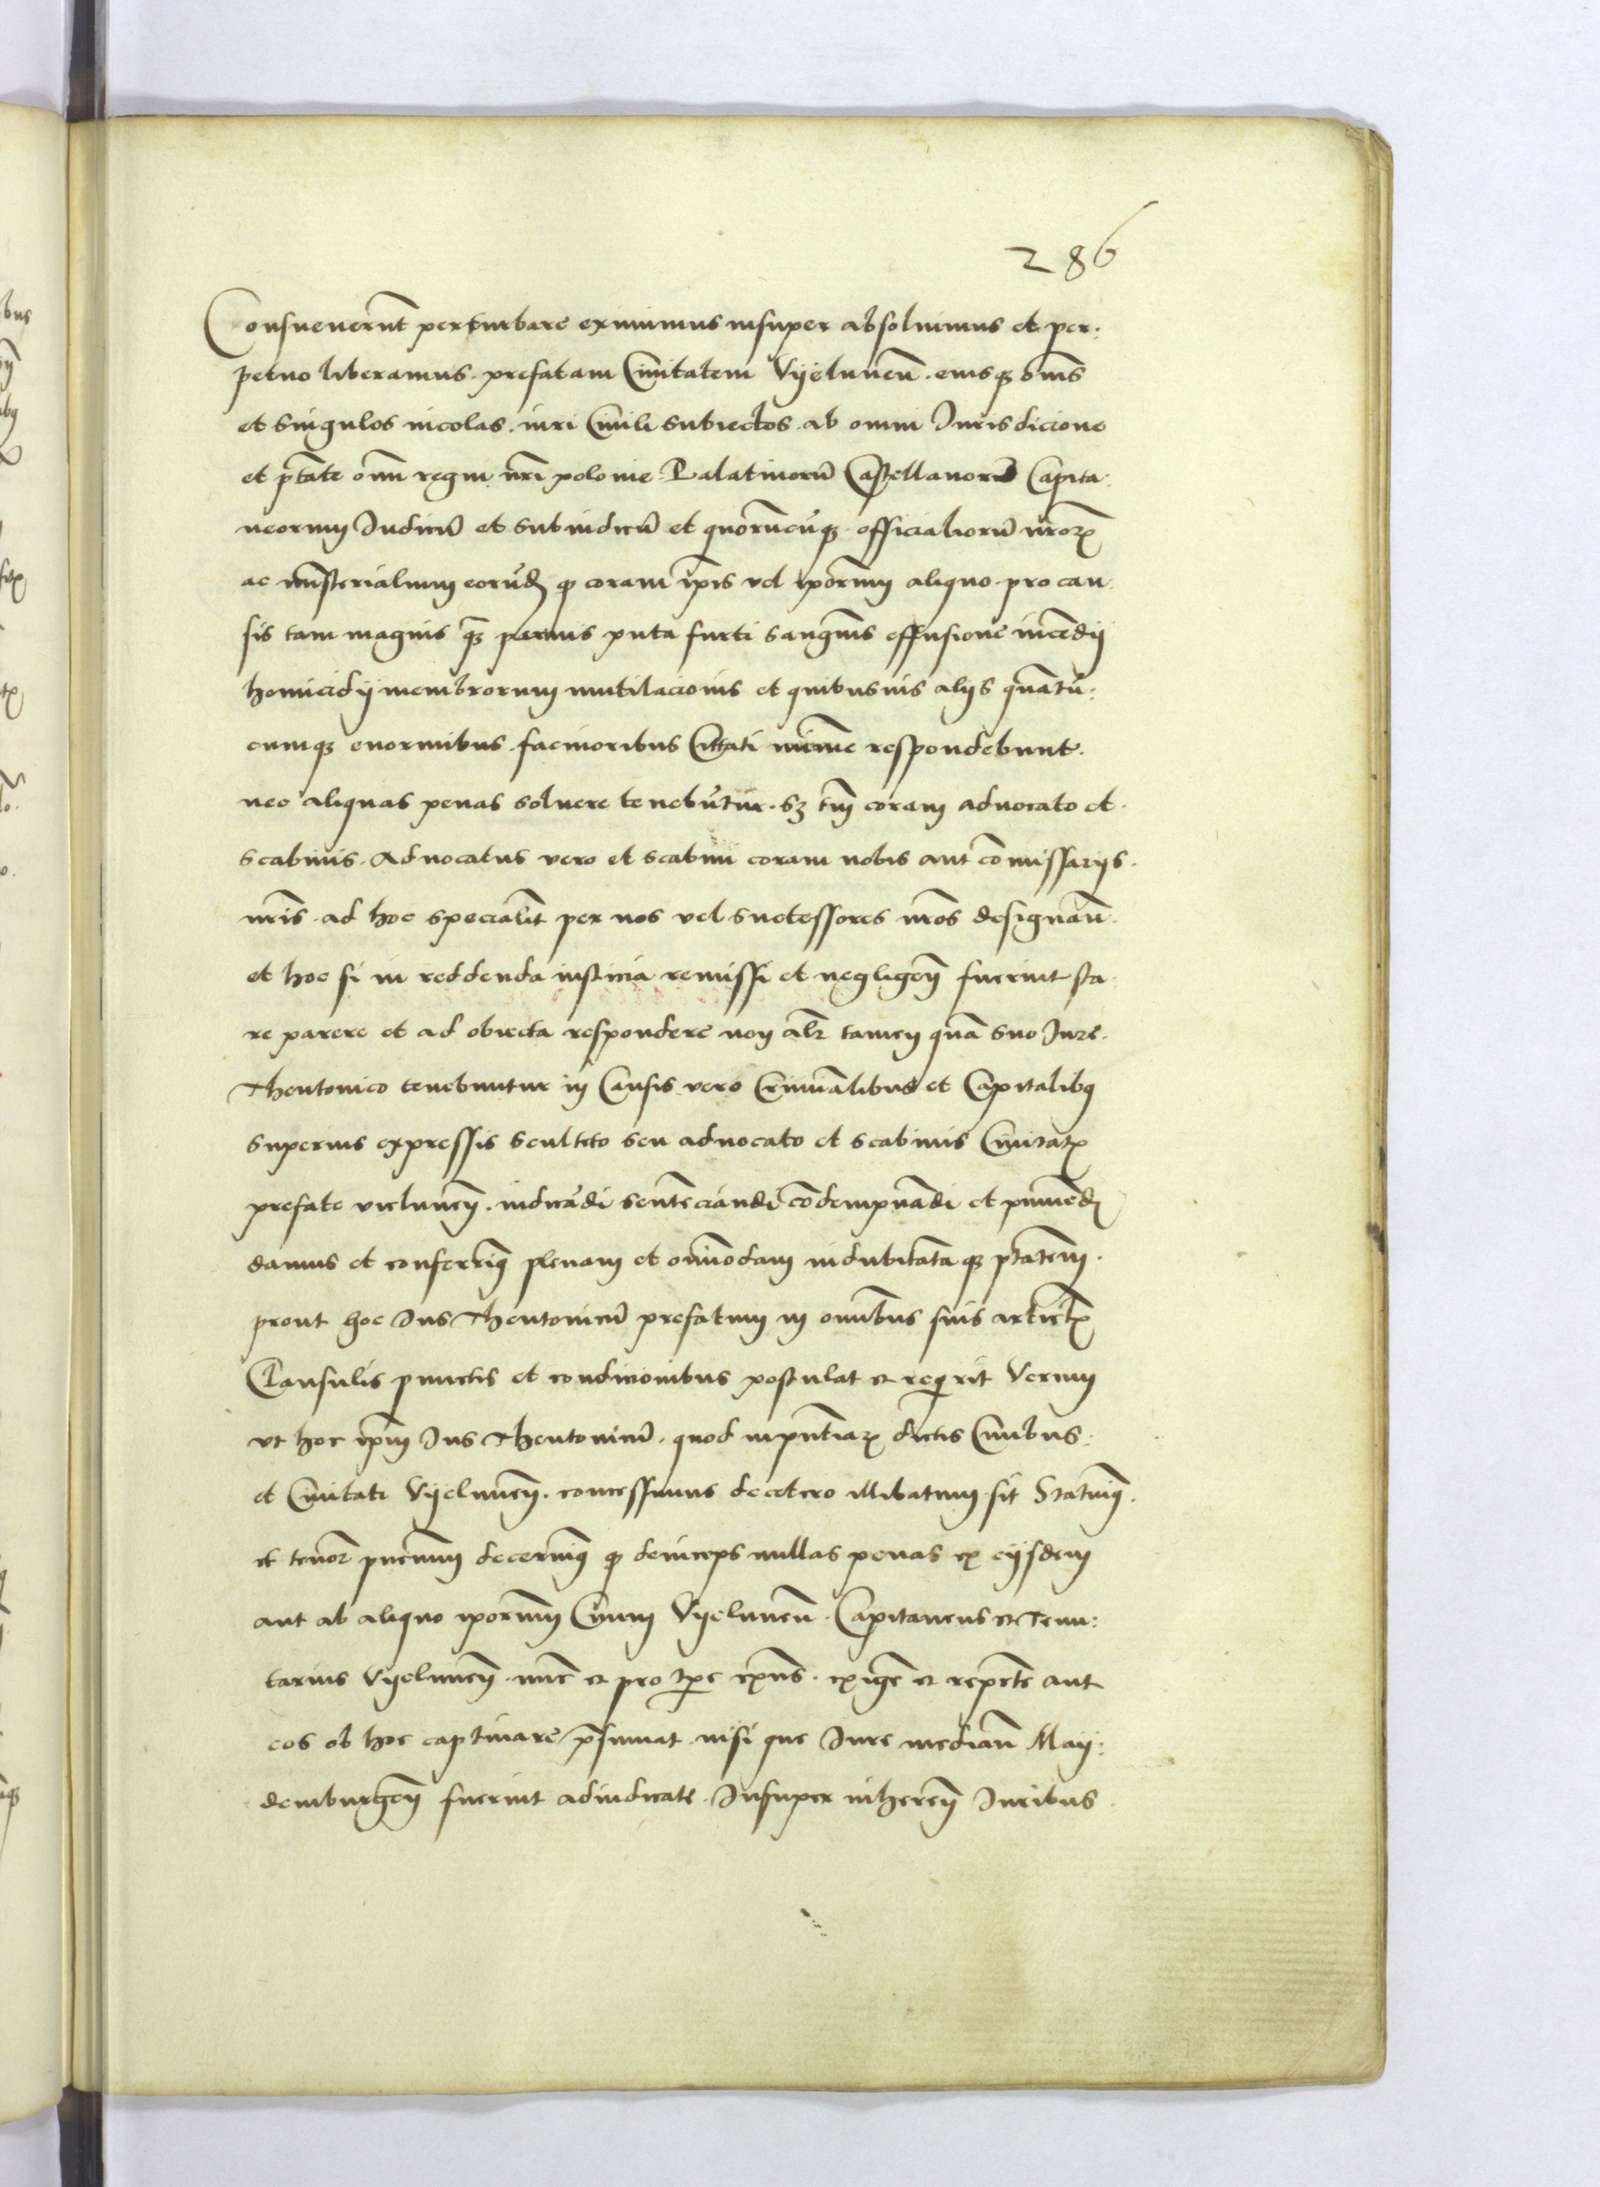 286
Consueuerūt perturbare eximimus insuper absoluimus et per:
petuo liberamus. prefatam Ciuitatem Vijelunen̄. eiusqꝫ om̄s
et singulos incolas. iuri Ciuili subiectos. ab omni Jurisdicione
et ptāte om̄i regni nr̄i polonie. Palatinorū Castellanorū Capita.
neorum Judicū et subiudicū et quorūcūqꝫ officialiorū nr̄oꝝ
ac mīsterialium eorūdē qꝫ coram ip̄is vel ip̄orum aliquo. pro cau.
sis tam magnis qꝫ paruis puta furti sangnīs effusione incēdij
homicidij membrorum mutilacionis et quibusuis alijs quātū:
cumqꝫ enormibus facinoribus Citati mīme respondebunt.
nec aliquas penas soluere tenebūtur. sꝫ tm̄ coram aduocato et.
scabinis. Aduocatus vero et scabini coram nobis aut cōmissarijs.
nr̄is. ad hoc specialit̄ per nos vel successores nr̄os designan̄.
et hoc si in reddenda iusticia remissi et negligen̄ fuerint sta.
re parere et ad obiecta respondere non alr̄ tamen quā suo Jure.
Theutonico tenebuntur in Causis vero Criminālibus et Capitalibꝫ
superius expressis scultito seu aduocato et scabinis Ciuitatꝭ
prefate vielunen̄. iudicādi sentēciandi cōdempnādi et puniēdi
damus et conferimꝫ plenam et om̄imodam indubitatā qꝫ ptātem.
prout hoc Jus Theutonicū prefatum in omībus suis articlꝭ
Clausulis punctis et condicionibus postulat et reqirit Verum
vt hoc ip̄m Jus Theutonicū. quod inpn̄tiaꝝ dictis Ciuibus.
et Ciuitati Vijelunen̄. concessimus decetero illibatum sit Statuimꝫ.
et tenor pn̄cium decernimꝫ qꝫ deinceps nullas penas ex eijsdem
aut ab aliquo ip̄orum Ciuium Vijelunen̄. Capitaneus et Tenu:
tarius Vijelunen̄. nūc et pro tpe exn̄s. exiger̄ et repeter̄ aut
eos ob hoc captiuare p̄sumat nisi que Jure median̄ Maij:
demburgen̄ fuerint adiudicate. Insuper inheren̄ Juribus